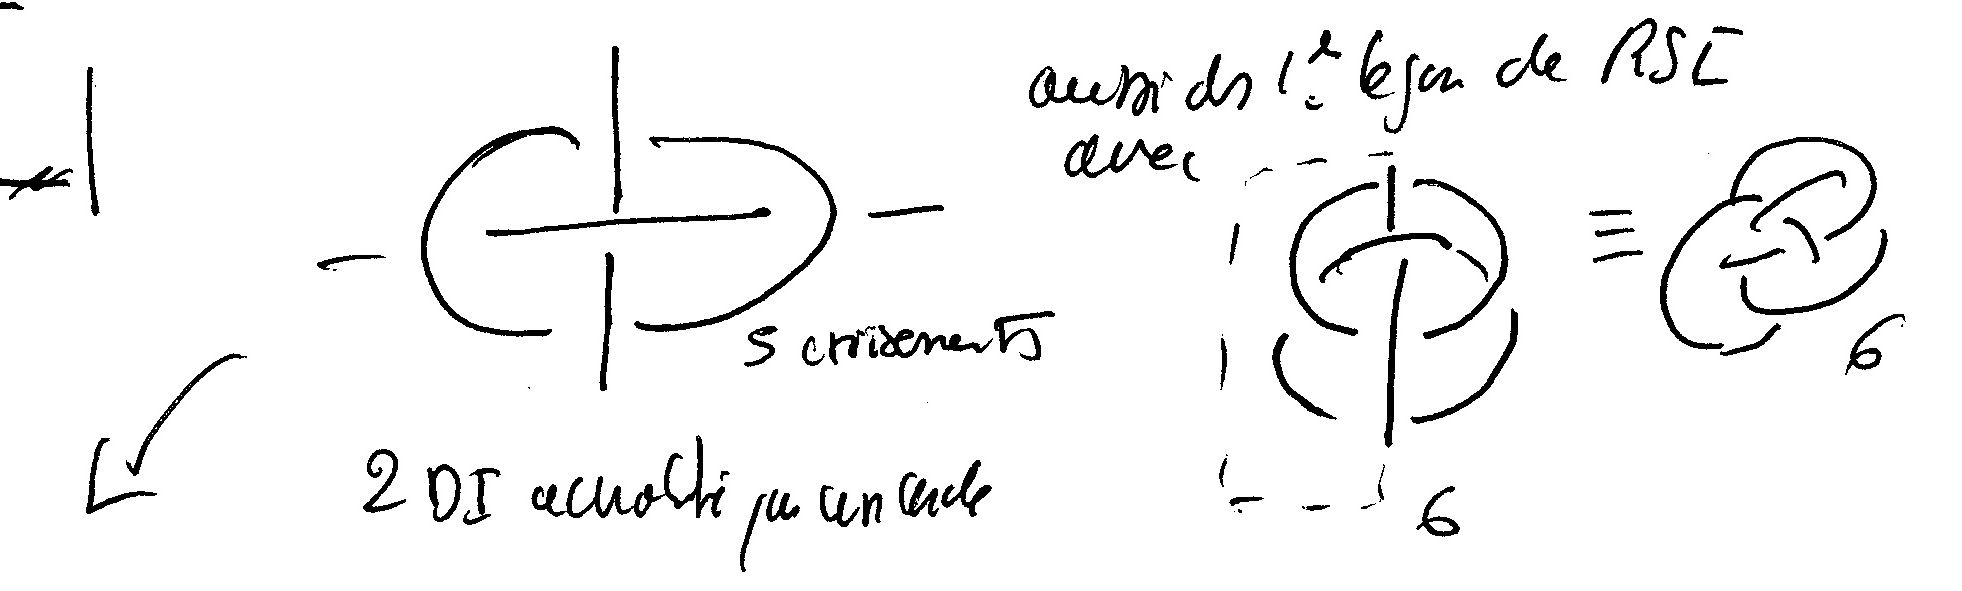 aussi ds 1è leçon de RSI
avec
5 croisements
6
2 DI par un cercle
6